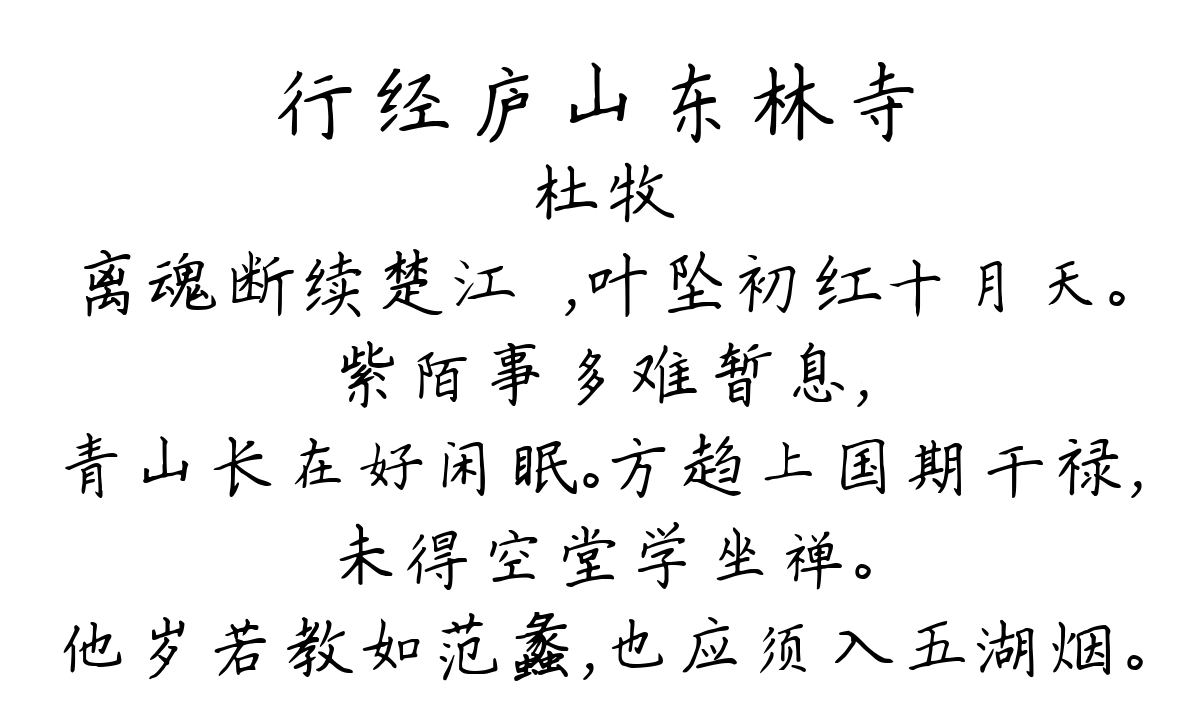 行经庐山东林寺
杜牧
离魂断续楚江 ,叶坠初红十月天。
紫陌事多难暂息,
青山长在好闲眠。方趋上国期干禄,
未得空堂学坐禅。
他岁若教如范蠡,也应须入五湖烟。